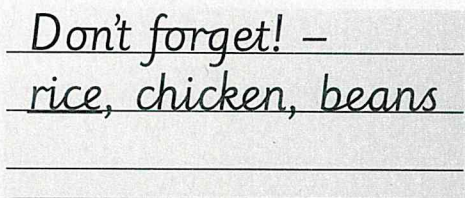 Don't forget! –
rice, chicken, beans